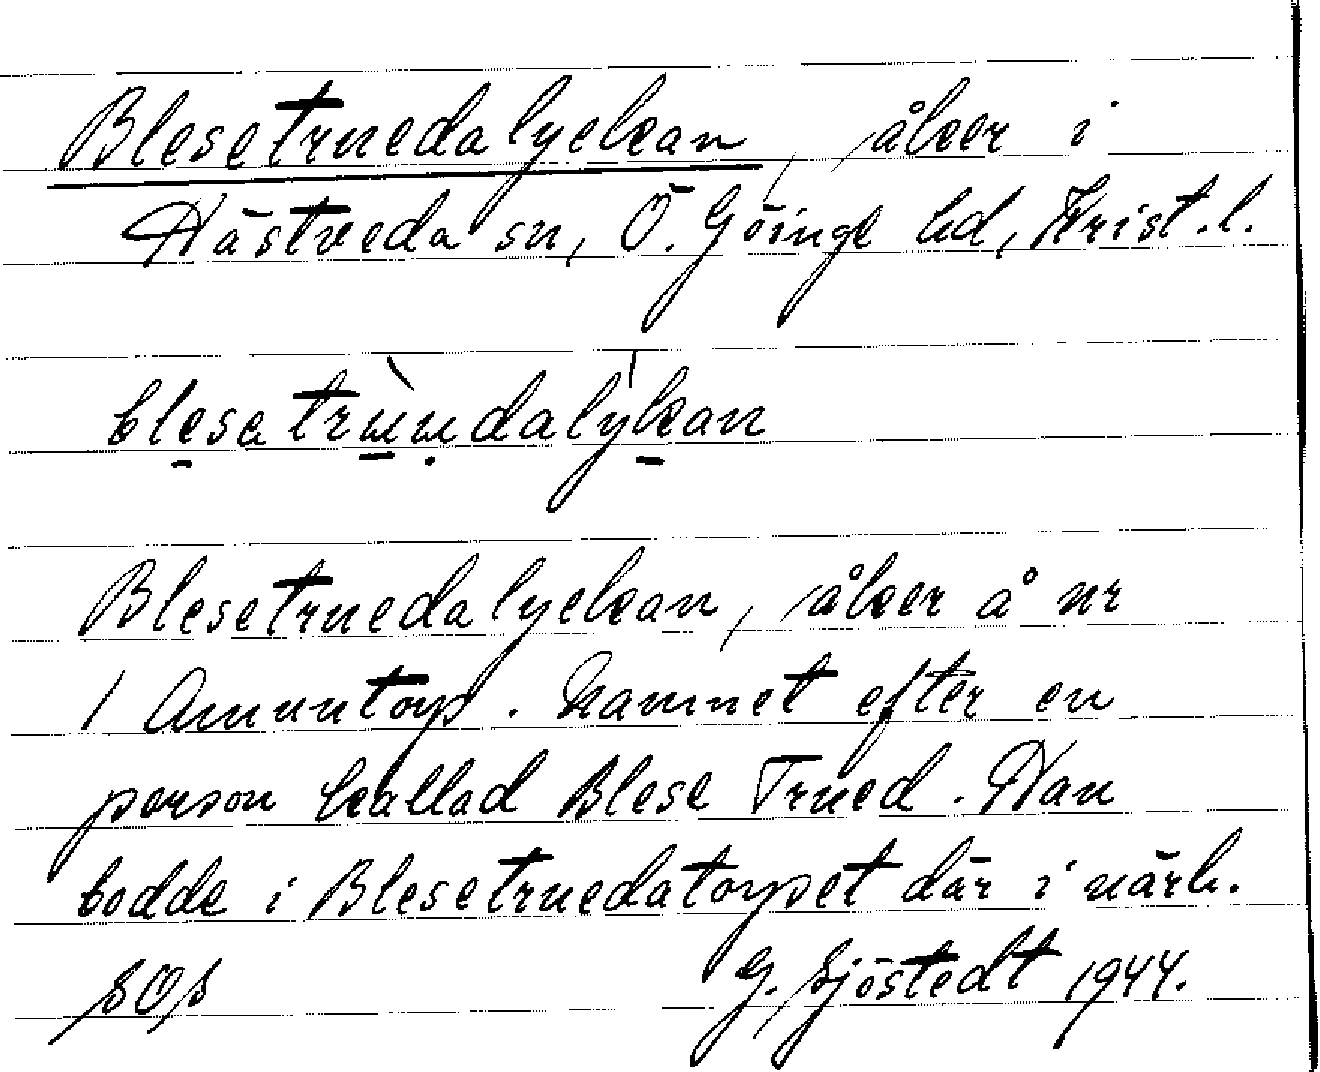 Blesetruedalyckan, åker i
Hästveda sn, Ö. Göinge hd, Krist. l.
Blesetruedalyckan, åker å nr
1 Amuntorp. Namnet efter en
person kallad Blese Trued. Han
bodde i Blesetruedatorpet där i närh.
SOS G. Sjöstedt 1944.